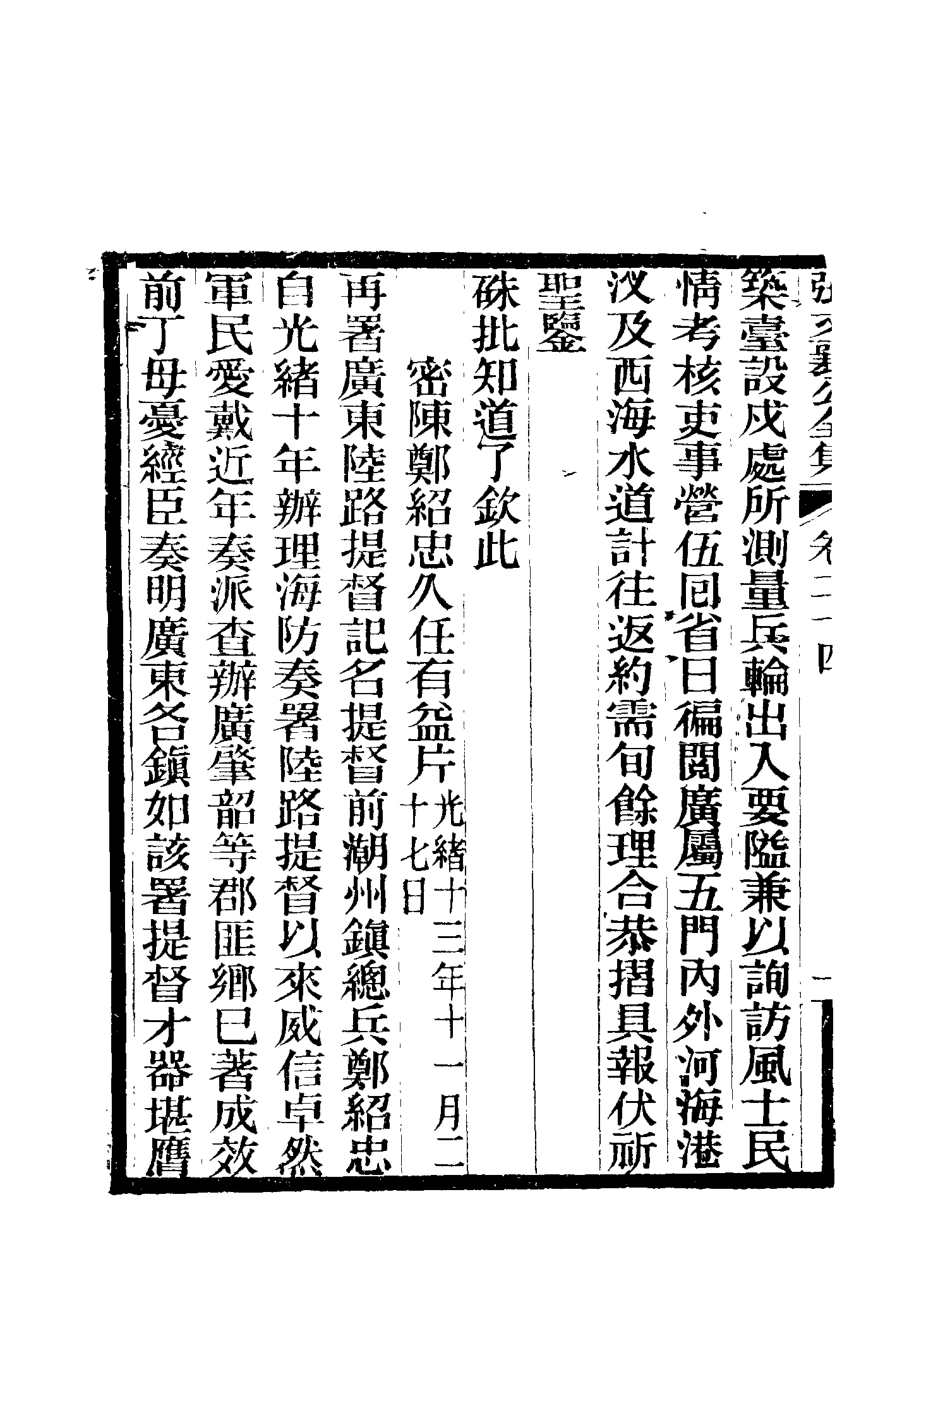 張文襄公全集 卷二十四 二
築臺設戍處所測量兵輪出入要隘兼以詢訪風土民
情考核吏事營伍囘省日徧閱廣屬五門內外河海港
汊及西海水道計往返約需旬餘理合恭摺具報伏祈
聖鑒
硃批知道了欽此
密陳鄭紹忠久任有益片光緒十三年十一月二
十七日
再署廣東陸路提督記名提督前潮州鎭總兵鄭紹忠
自光緒十年辦理海防奏署陸路提督以來威信卓然
軍民愛戴近年奏派查辦廣肇韶等郡匪鄉已著成效
前丁母憂經臣奏明廣東各鎭如該署提督才器堪膺